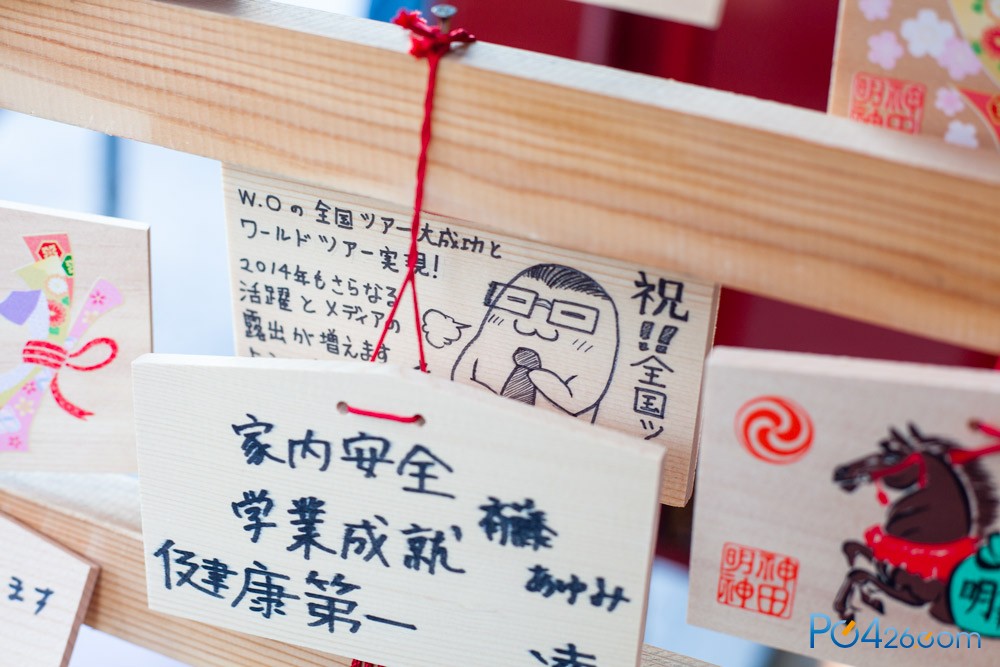 W.Oの全国ツアー大成功と
ワールドツアー実現!
2014年もさらなる
活躍とメディアの
露出が増えます
祝!!全国ツ
家内安全
学業成就
健康第一
あゆみ
ます
神田
明神
神田
明神
明
PO42600m